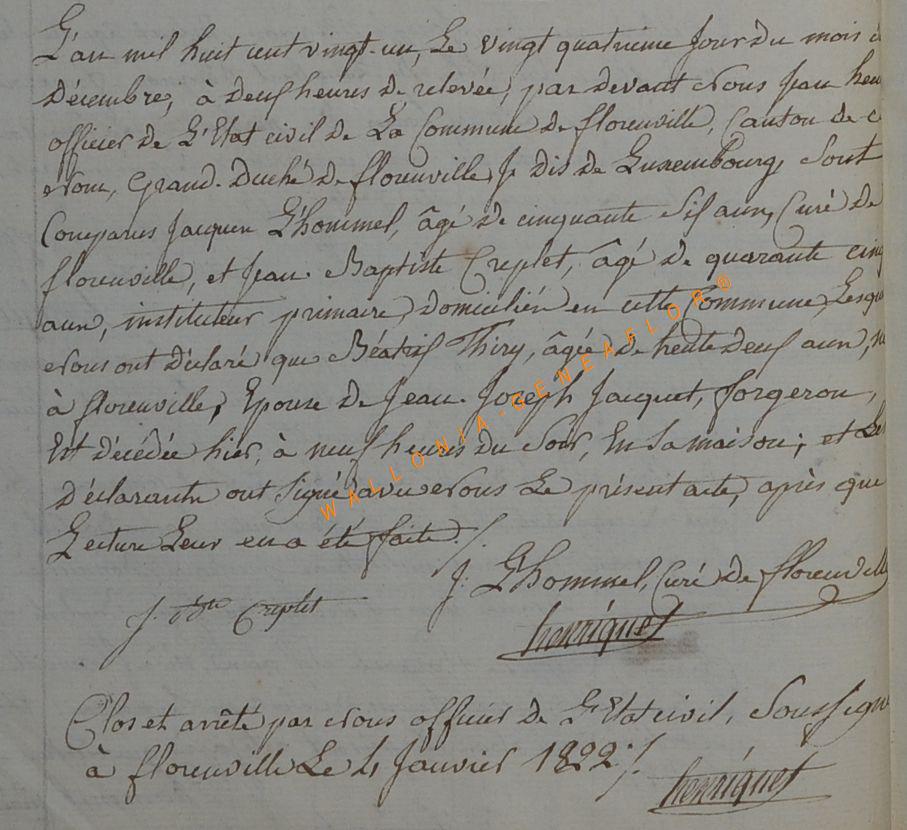 L'an mil huit cent vingt-un, Le vingt quatrieme Jour du mois d
Décembre, à deux heures de relevée, par devant Nous Jean hen
officier de L'Etat civil de La Commune de florenville, Canton de c
Nom, Grand-Duché de florenville Je dis de Luxembourg, Sont
Comparus Jacques L'hommel, âgé de cinquante Six ans, Curé de
florenville, et Jean-Baptiste Creplet, âgé de quarante cinq
ans, instituteur primaire, domiciliés en cette Commune, Lesqu
Nous ont déclaré que Béatrix Thiry, âgée de trente deux ans, n
à florenville, Epouse de Jean-Joseph Jacquet, forgeron,
Est décédée hier, à neuf heures du Soir, En Sa maison; et Les
Déclarants ont Signé avec Nous Le présent acte, après que
Lecture Leur en a été faite./.
J: L'hommel, Curé de florenvill
J. Bte Creplet
henriquet
Clos et arrêté par Nous officier de L'Etat civil, Soussign
à florenville Le 4 Janvier 1822./.
henriquet
WALLONIA-GENEAFLOR®